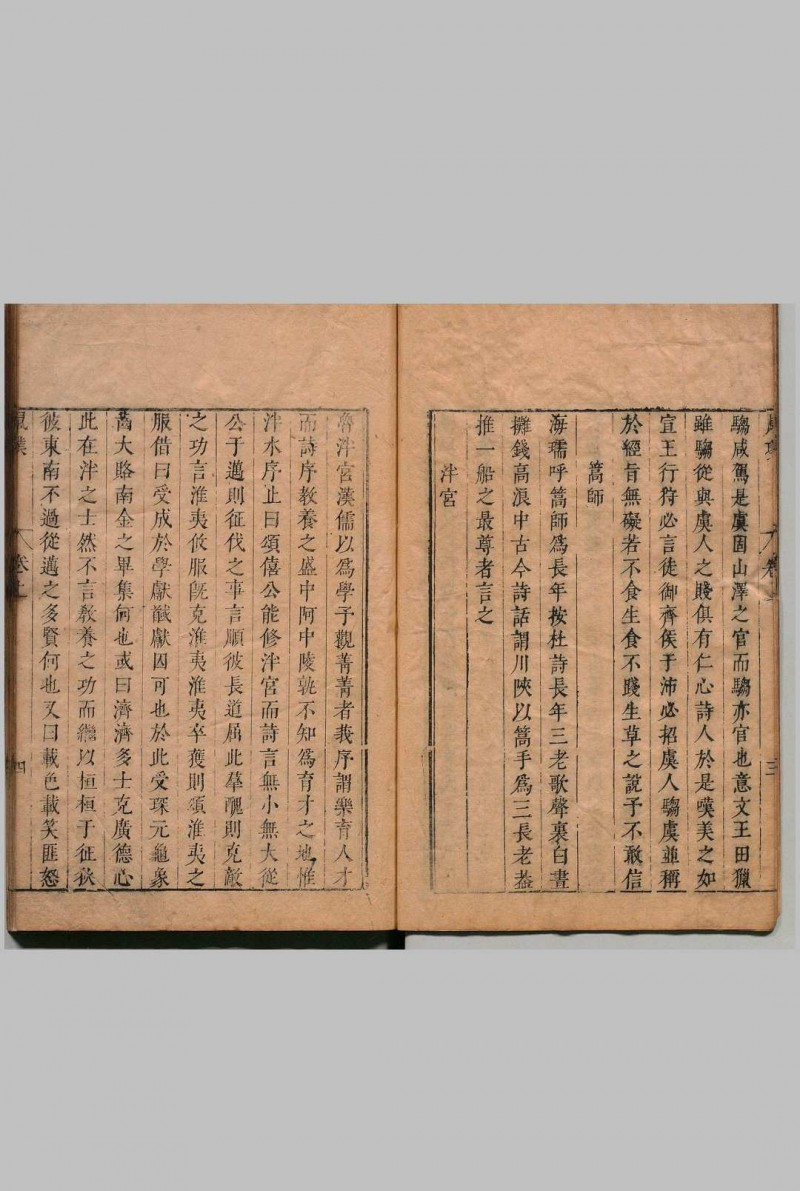 騶咸駕是虞固山澤之官而騶亦官也意文王田獵
雖騶從與虞人之賤俱有仁心詩人於是嘆美之如
宣王行狩必言徒御齊侯于沛必招虞人騶虞並稱
於經旨無礙若不食生食不踐生草之說予不敢信
蒿師
海瑶呼蒿師為長年按杜詩長年三老歌聲裏白晝
攤錢高浪中古今詩話謂川陝以蒿手為三長老葢
推一船之最尊者言之
泮宮
三
魯泮宮漢儒以為學予觀菁菁者莪序謂樂育人才
而詩序教養之盛中阿中陵孰不知為育才之地惟
泮水序止曰頌僖公能修泮宮而詩言無小無大從
公于邁則征伐之事言順彼長道屈此羣醜則克敵
之功言淮夷攸服旣克淮夷淮夷卒獲則頌淮夷之
服借曰受成於學獻馘獻囚可也於此受琛元龜象
齒大賂南金之畢集何也或曰濟濟多士克廣德心
此在泮之士然不言教養之功而繼以桓桓于征狄
彼東南不過從邁之多賢何也又曰載色載笑匪怒
卷七
四